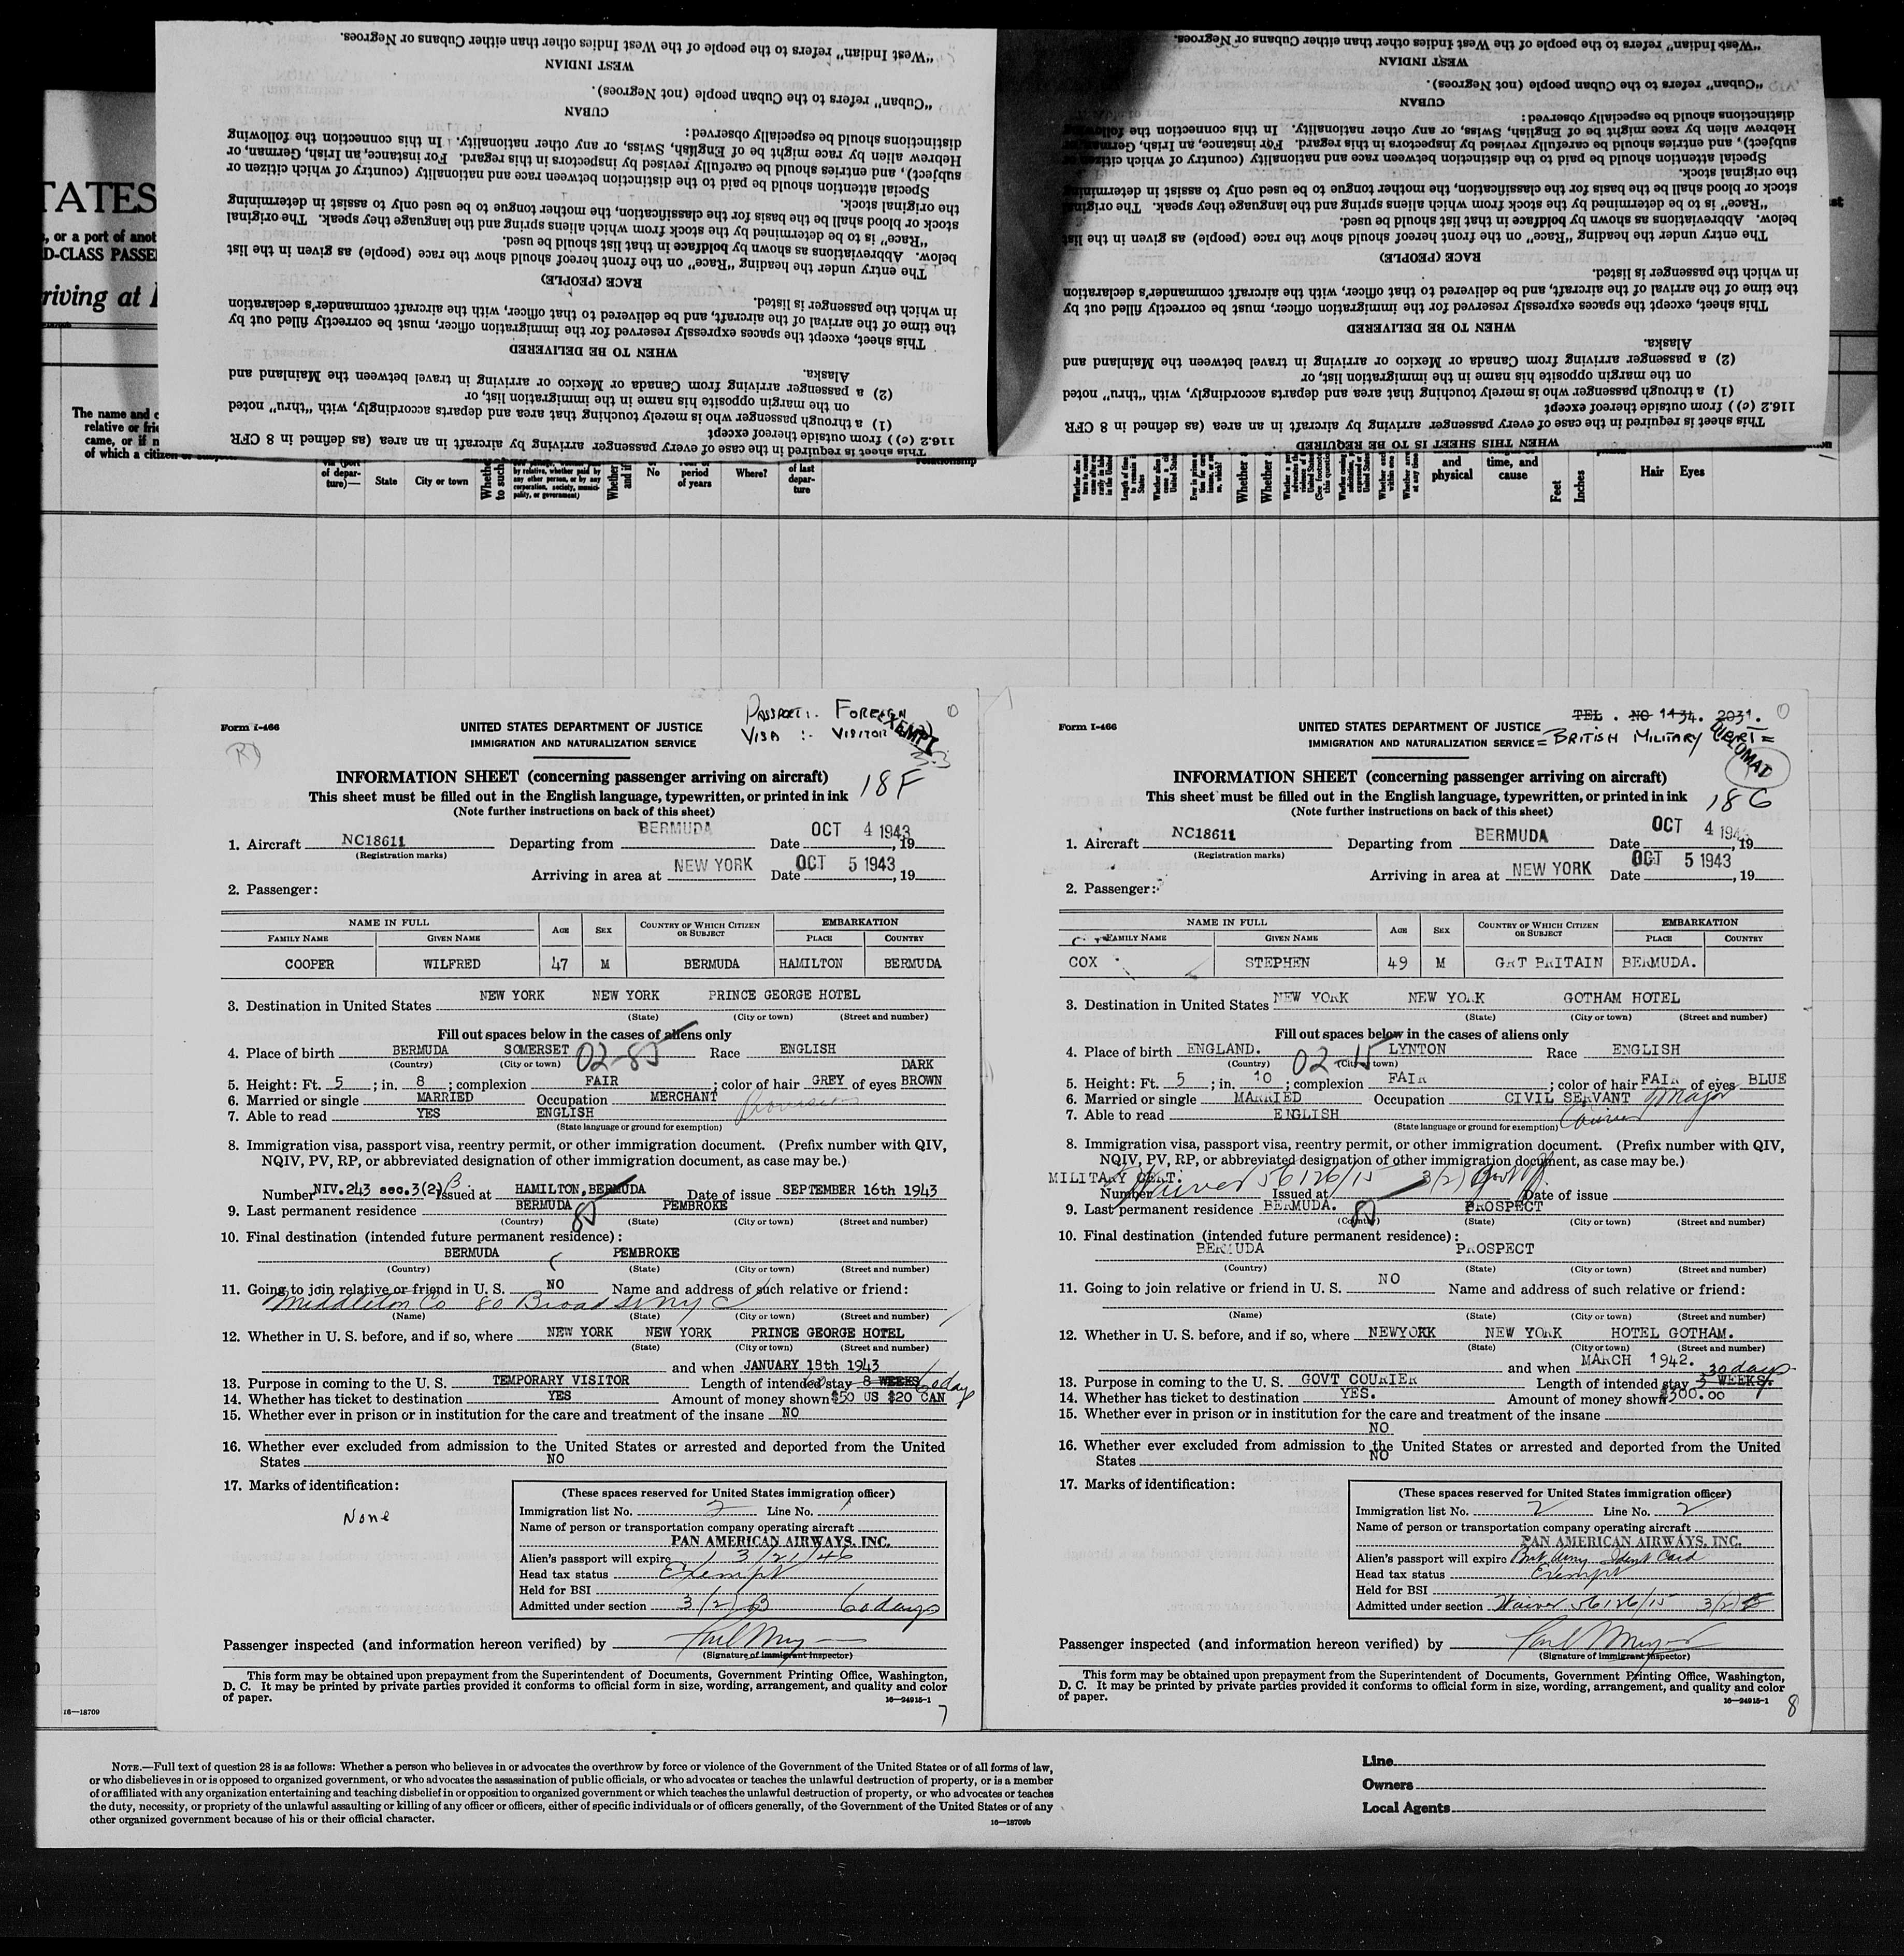 "West Indian" refers to the people of the West Indies other than either Cubans or Negroes.
WEST INDIAN
"Cuban" refers to the Cuban people (not Negroes).
CUBAN
distinctions should be especially observed:
Hebrew alien by race might be of English, Swiss, or any other nationality. In this connection the following
subject), and entries should be carefully revised by inspectors in this regard. For instance, an Irish, German, or
Special attention should be paid to the distinction between race and nationality (country of which citizen or
the original stock.
stock or blood shall be the basis for the classification, the mother tongue to be used only to assist in determining
"Race" is to be determined by the stock from which aliens spring and the language they speak. The original
below. Abbreviations as shown by boldface in that list should be used.
The entry under the heading "Race" on the front hereof should show the race (people) as given in the list
RACE (PEOPLE)
in which the passenger is listed.
the time of the arrival of the aircraft, and be delivered to that officer, with the aircraft commander's declaration
This sheet, except the spaces expressly reserved for the immigration officer, must be correctly filled out by
WHEN TO BE DELIVERED
Alaska.
(2) a passenger arriving from Canada or Mexico or arriving in travel between the Mainland and
on the margin opposite his name in the immigration list, or
(1) a through passenger who is merely touching that area and departs accordingly, with "thru" noted
116.2 (c)) from outside thereof except
This sheet is required in the case of every passenger arriving by aircraft in an area (as defined in 8 CFR
"West Indian" refers to the people of the West Indies other than either Cubans or Negroes.
WEST INDIAN
"Cuban" refers to the Cuban people (not Negroes).
CUBAN
distinctions should be especially observed:
Hebrew alien by race might be of English, Swiss, or any other nationality. In this connection the following
subject), and entries should be carefully revised by inspectors in this regard. For instance, an Irish, German, or
Special attention should be paid to the distinction between race and nationality (country of which citizen or
the original stock.
stock or blood shall be the basis for the classification, the mother tongue to be used only to assist in determining
"Race" is to be determined by the stock from which aliens spring and the language they speak. The original
below. Abbreviations as shown by boldface in that list should be used.
The entry under the heading "Race" on the front hereof should show the race (people) as given in the list
RACE (PEOPLE)
in which the passenger is listed.
the time of the arrival of the aircraft, and be delivered to that officer, with the aircraft commander's declaration
This sheet, except the spaces expressly reserved for the immigration officer, must be correctly filled out by
WHEN TO BE DELIVERED
Alaska.
(2) a passenger arriving from Canada or Mexico or arriving in travel between the Mainland and
on the margin opposite his name in the immigration list, or
(1) a through passenger who is merely touching that area and departs accordingly, with "thru" noted
116.2 (c)) from outside thereof except
This sheet is required in the case of every passenger arriving by aircraft in an area (as defined in 8 CFR
WHEN THIS SHEET IS TO BE REQUIRED
TATES
, or a port of anot
D-CLASS PASSE
riving at
The name and
relative or frie
came, or if n
of which a citizen
of depar-
ture)—
State
City or town
Whether
to such
by relative, whether paid by
any other person, or by any
corporation, society, munici-
pality, or government)
Whether
and if
No
period
of years
Where?
of last
depar-
ture
and
physical
time, and
cause
Feet
Inches
Hair
Eyes
Form I-466
UNITED STATES DEPARTMENT OF JUSTICE
IMMIGRATION AND NATURALIZATION SERVICE
PASSPORT:. FOREIGN
VISA :- VISITOR
EXEMPT
3.3
INFORMATION SHEET (concerning passenger arriving on aircraft)
18F
This sheet must be filled out in the English language, typewritten, or printed in ink
(Note further instructions on back of this sheet)
1. Aircraft NC18611 Departing from BERMUDA Date OCT 4 1943, 19
(Registration marks)
Arriving in area at NEW YORK Date OCT 5 1943, 19
2. Passenger:
NAME IN FULL
FAMILY NAME
GIVEN NAME
AGE
SEX
COUNTRY OF WHICH CITIZEN OR SUBJECT
EMBARKATION
PLACE
COUNTRY
COOPER WILFRED 47 M BERMUDA HAMILTON BERMUDA
3. Destination in United States NEW YORK NEW YORK PRINCE GEORGE HOTEL
(State) (City or town) (Street and number)
Fill out spaces below in the cases of aliens only
4. Place of birth BERMUDA SOMERSET 02-85 Race ENGLISH
(Country) (City or town)
DARK
5. Height: Ft. 5; in. 8; complexion FAIR; color of hair GREY of eyes BROWN
6. Married or single MARRIED Occupation MERCHANT
7. Able to read YES ENGLISH
(State language or ground for exemption)
8. Immigration visa, passport visa, reentry permit, or other immigration document. (Prefix number with QIV,
NQIV, PV, RP, or abbreviated designation of other immigration document, as case may be.)
Number NIV.243 sec.3(2)B Issued at HAMILTON, BERMUDA Date of issue SEPTEMBER 16th 1943
9. Last permanent residence BERMUDA 85 PEMBROKE
(Country) (State) (City or town) (Street and number)
10. Final destination (intended future permanent residence):
BERMUDA PEMBROKE
(Country) (State) (City or town) (Street and number)
11. Going to join relative or friend in U. S. NO Name and address of such relative or friend:
Middleton Co 80 Broad St NYC
(Name) (State) (City or town) (Street and number)
12. Whether in U. S. before, and if so, where NEW YORK NEW YORK PRINCE GEORGE HOTEL
(State) (City or town) (Street and number)
and when JANUARY 18th 1943
13. Purpose in coming to the U. S. TEMPORARY VISITOR Length of intended stay 8 WEEKS 60 days
14. Whether has ticket to destination YES Amount of money shown $50 US $20 CAN
15. Whether ever in prison or in institution for the care and treatment of the insane NO
16. Whether ever excluded from admission to the United States or arrested and deported from the United
States NO
17. Marks of identification:
None
(These spaces reserved for United States immigration officer)
Immigration list No. 2 Line No. 1
Name of person or transportation company operating aircraft
PAN AMERICAN AIRWAYS, INC.
Alien's passport will expire 1/21/46
Head tax status Exempt
Held for BSI
Admitted under section 3(2)B 60 days
Passenger inspected (and information hereon verified) by
(Signature of immigrant inspector)
This form may be obtained upon prepayment from the Superintendent of Documents, Government Printing Office, Washington,
D. C. It may be printed by private parties provided it conforms to official form in size, wording, arrangement, and quality and color
of paper.
16—24915-1
7
Form I-466
UNITED STATES DEPARTMENT OF JUSTICE
IMMIGRATION AND NATURALIZATION SERVICE
TEL. NO 1434. 2031.
= BRITISH MILITARY CERT=
DIPLOMAT
INFORMATION SHEET (concerning passenger arriving on aircraft)
18G
This sheet must be filled out in the English language, typewritten, or printed in ink
(Note further instructions on back of this sheet)
1. Aircraft NC18611 Departing from BERMUDA Date OCT 4 194, 19
(Registration marks)
Arriving in area at NEW YORK Date OCT 5 1943, 19
2. Passenger:
NAME IN FULL
FAMILY NAME
GIVEN NAME
AGE
SEX
COUNTRY OF WHICH CITIZEN OR SUBJECT
EMBARKATION
PLACE
COUNTRY
COX STEPHEN 49 M GRT BRITAIN BERMUDA.
3. Destination in United States NEW YORK NEW YORK GOTHAM HOTEL
(State) (City or town) (Street and number)
Fill out spaces below in the cases of aliens only
4. Place of birth ENGLAND. 02-15 LYNTON Race ENGLISH
(Country) (City or town)
5. Height: Ft. 5; in. 10; complexion FAIR; color of hair FAIR of eyes BLUE
6. Married or single MARRIED Occupation CIVIL SERVANT Major
7. Able to read ENGLISH Courier
(State language or ground for exemption)
8. Immigration visa, passport visa, reentry permit, or other immigration document. (Prefix number with QIV,
NQIV, PV, RP, or abbreviated designation of other immigration document, as case may be.)
MILITARY CERT.
Number Waiver 56126/15 Issued at 3(2) Date of issue
9. Last permanent residence BERMUDA. 85 PROSPECT
(Country) (State) (City or town) (Street and number)
10. Final destination (intended future permanent residence):
BERMUDA PROSPECT
(Country) (State) (City or town) (Street and number)
11. Going to join relative or friend in U. S. NO Name and address of such relative or friend:
(Name) (State) (City or town) (Street and number)
12. Whether in U. S. before, and if so, where NEWYORK NEW YORK HOTEL GOTHAM.
(State) (City or town) (Street and number)
and when MARCH 1942.
30 days
13. Purpose in coming to the U. S. GOVT COURIER Length of intended stay 3 WEEKS.
14. Whether has ticket to destination YES. Amount of money shown $300.00
15. Whether ever in prison or in institution for the care and treatment of the insane
NO
16. Whether ever excluded from admission to the United States or arrested and deported from the United
States NO
17. Marks of identification:
(These spaces reserved for United States immigration officer)
Immigration list No. 2 Line No. 2
Name of person or transportation company operating aircraft
PAN AMERICAN AIRWAYS, INC.
Alien's passport will expire Brit Army Ident Card
Head tax status Exempt
Held for BSI
Admitted under section Waiver 56126/15 3(2)
Passenger inspected (and information hereon verified) by
(Signature of immigrant inspector)
This form may be obtained upon prepayment from the Superintendent of Documents, Government Printing Office, Washington,
D. C. It may be printed by private parties provided it conforms to official form in size, wording, arrangement, and quality and color
of paper.
16—24915-1
8
16—18709
NOTE.—Full text of question 28 is as follows: Whether a person who believes in or advocates the overthrow by force or violence of the Government of the United States or of all forms of law,
or who disbelieves in or is opposed to organized government, or who advocates the assassination of public officials, or who advocates or teaches the unlawful destruction of property, or is a member
of or affiliated with any organization entertaining and teaching disbelief in or opposition to organized government or which teaches the unlawful destruction of property, or who advocates or teaches
the duty, necessity, or propriety of the unlawful assaulting or killing of any officer or officers, either of specific individuals or of officers generally, of the Government of the United States or of any
other organized government because of his or their official character.
16—18709b
Line
Owners
Local Agents